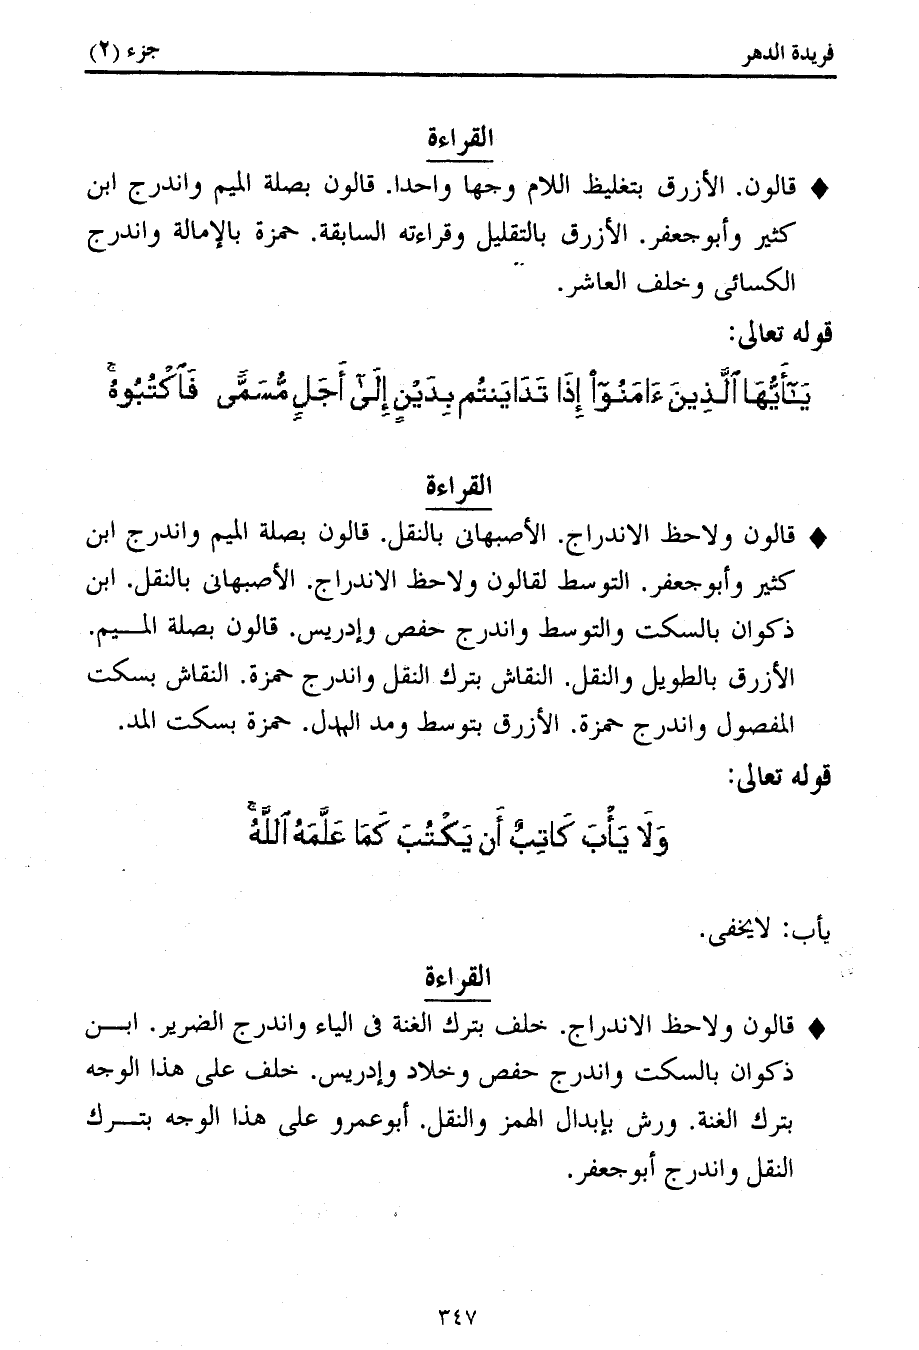 فريدة الدهر
جزء (٢)
القراءة
♦ قالون. الأزرق بتغليظ اللام وجها واحدا. قالون بصلة الميم واندرج ابن
كثير وأبوجعفر. الأزرق بالتقليل وقراءته السابقة. حمزة بالإمالة واندرج
الكسائى وخلف العاشر.
قوله تعالى:
يَـٰٓأَيُّهَا ٱلَّذِينَ ءَامَنُوٓا۟ إِذَا تَدَايَنتُم بِدَيْنٍ إِلَىٰٓ أَجَلٍ مُّسَمًّى فَٱكْتُبُوهُ ۚ
القراءة
♦ قالون ولاحظ الاندراج. الأصبهانى بالنقل. قالون بصلة الميم واندرج ابن
كثير وأبوجعفر. التوسط لقالون ولاحظ الاندراج. الأصبهانى بالنقل. ابن
ذكوان بالسكت والتوسط واندرج حفص وإدريس. قالون بصلة المـــيم.
الأزرق بالطويل والنقل. النقاش بترك النقل واندرج حمزة. النقاش بسكت
المفصول واندرج حمزة. الأزرق بتوسط ومد البدل. حمزة بسكت المد.
قوله تعالى:
وَلَا يَأْبَ كَاتِبٌ أَن يَكْتُبَ كَمَا عَلَّمَهُ ٱللَّهُ ۚ
يأب: لايخفى.
القراءة
♦ قالون ولاحظ الاندراج. خلف بترك الغنة فى الياء واندرج الضرير. ابـــن
ذكوان بالسكت واندرج حفص وخلاد وإدريس. خلف على هذا الوجه
بترك الغنة. ورش بإبدال الهمز والنقل. أبوعمرو على هذا الوجه بتـــرك
النقل واندرج أبوجعفر.
٣٤٧